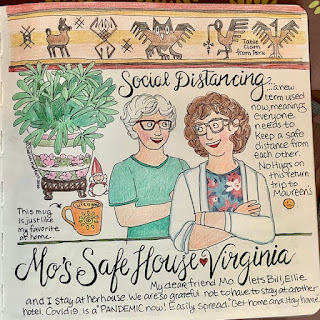 Table
Cloth
from Peru
Social Distancing
...a new
term used
now, meaning
everyone
needs to
keep a safe
distance from
each other.
No Hugs on
this return
trip to
Maureen's
This mug
is just like
my favorite
at home.
Mo's Safe House Virginia
My dear friend Mo lets Bill, Ellie
and I stay at her house. We are so grateful not to have to stay at another
hotel. Covid19 is a "PANDEMIC now! Easily Spread." Get home and stay home.